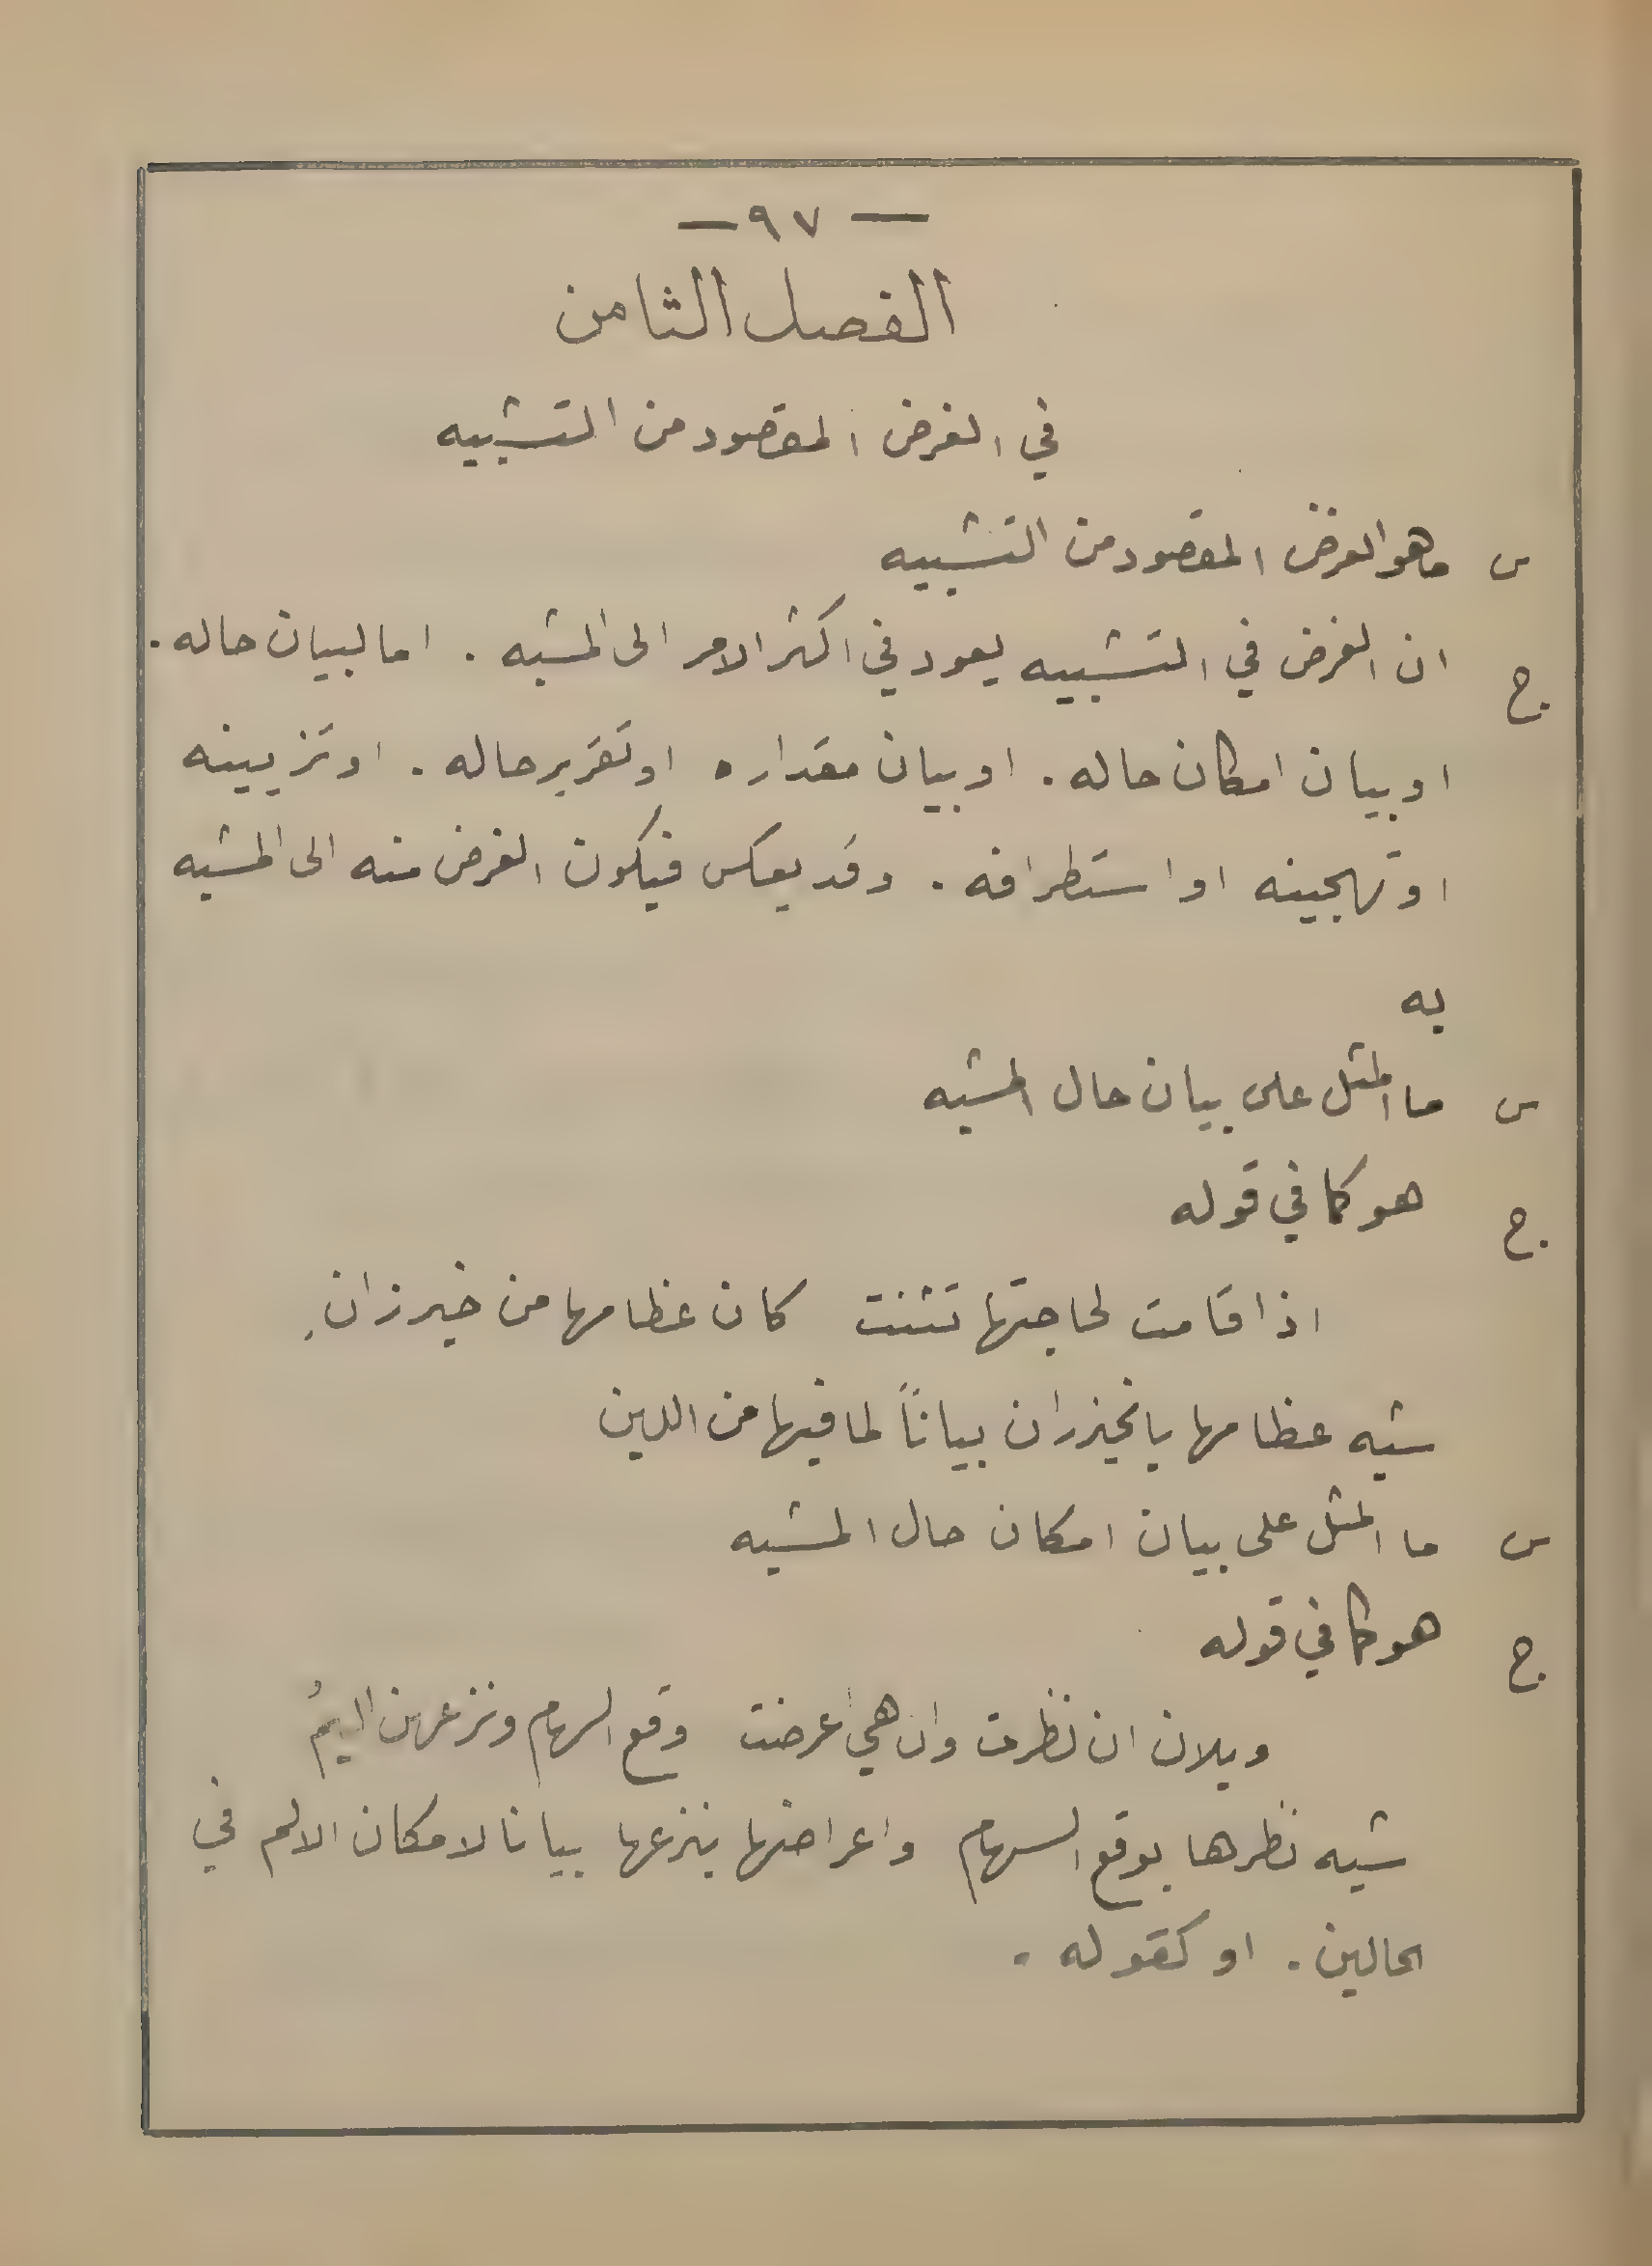 — ٩٧ —
الفصل الثامن
في الغرض المقصود من التشبيه
س ما هو الغرض المقصود من التشبيه
ج. ان الغرض في التشبيه يعود في اكثر الامر الى المشبه . اما لبيان حاله .
او بيان امكان حاله . او بيان مقداره او تقرير حاله . او تزيينه
او تهجينه او استطرافه . وقد يعكس فيكون الغرض منه الى المشبه
به
س ما المثل على بيان حال المشبه
ج. هو كما في قوله
اذا قامت لحاجتها تثنت كان عظامها من خيزرانِ
شبه عظامها بالخيزران بياناً لما فيها من اللين
س ما المثل على بيان امكان حال المشبه
ج. هو كما في قوله
ويلان ان نظرت وان هي اعرضت وقع السهام ونزعهن اليمُ
شبه نظرها بوقع السهام واعراضها بنزعها بيانا لامكان الالم في
الحالين . او كقوله .